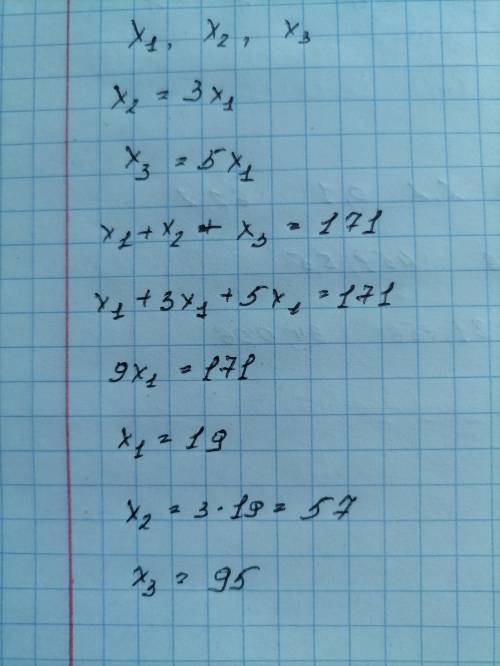 x₁, x₂, x₃
x₂ = 3x₁
x₃ = 5x₁
x₁ + x₂ + x₃ = 171
x₁ + 3x₁ + 5x₁ = 171
9x₁ = 171
x₁ = 19
x₂ = 3·19 = 57
x₃ = 95